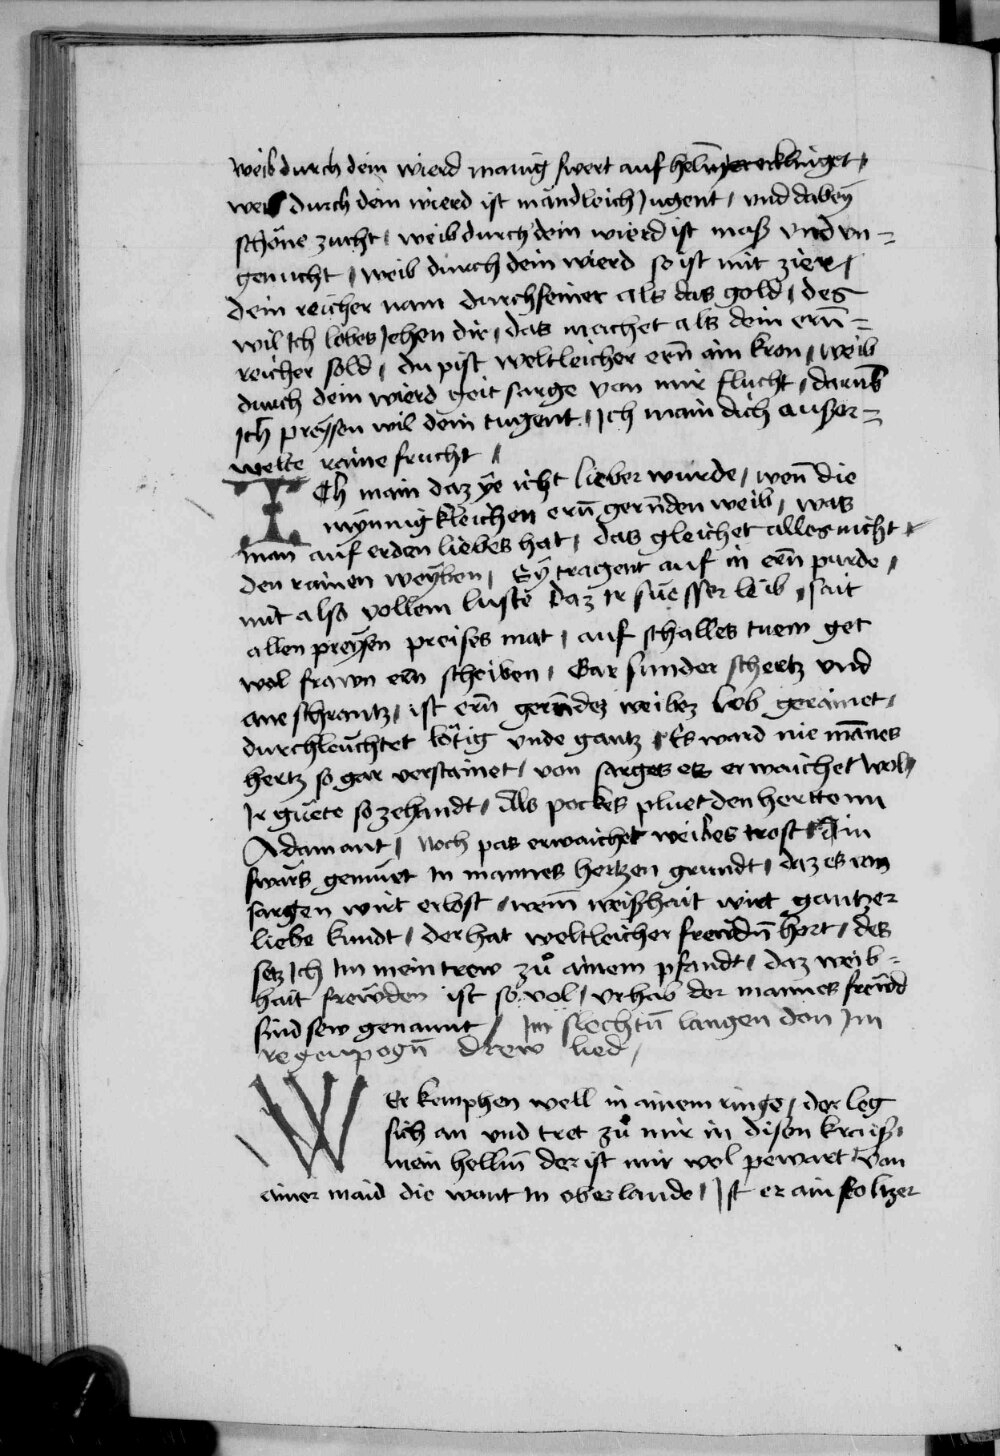 weib durch dein wierd manig swert auf helm erecklinget /
weib durch dein wierd ist mändleich Jugent / vnd dabey
schöne zucht / weib durch dein wierd ist masz vnd vn =
genucht / weib durch dein wierd so ist mit zier /
dein reicher nam durchfeiner als das gold / des
wil Ich lobes Jehen dir / das machet als dein ern̄ =
reicher sold / du pist weltleicher ern̄ ain kron / weib
durch dein wierd geit sarge von mir flucht / darūb
Ich preysen wil dein tugent / Ich main dich auszer =
welte raine frucht /
ICh main daz ye icht lieber wurde / wen̄ die
mynnigkleichen ern̄ gern̄den weib / was
man auf erden liebes hat / das gleichet alles nicht /
den rainen weyben / Sy tragent auf in ern̄ purde /
mit also vollem luste daz Ir suesser leib / sait
allen preysen preises mat / auf schalles tuem get
wol frawn ern̄ scheiben / Gar sunder schertz vnd
ane schrantz / ist ern̄ gern̄dez weibez lob gerainet /
durchleuchtet lötig vnde gantz / Es ward nie mānes
hertz so gar verstainet / von sarges er erwaichet wol /
Ir guete so zehandt / Als pockes pluet den hertten
Adamant / Noch pas erwaichet weibes trost / Ain
swärs gemuet In mannes hertzen grundt / daz es von
sargen wirt erlost / wem̄ weiszhait wirt gantzer
liebe kundt / der hat weltleicher frewdn̄ hort / des
setz Ich Im mein trew zů ainem pfandt / daz weib =
hait frewden ist so vol / vrhab der mannes frewd
sind sew genannt / Im slechtn̄ langen don Im
regenpogn̄ drew lied /
WEr kemphen well in ainem ringe / der leg
sich an vnd tret zů mir in disen kraisz /
mein hellm̄ der ist mir wol pewart / von
ainer maid die wont In oberlande / Ist er ain stoltzer